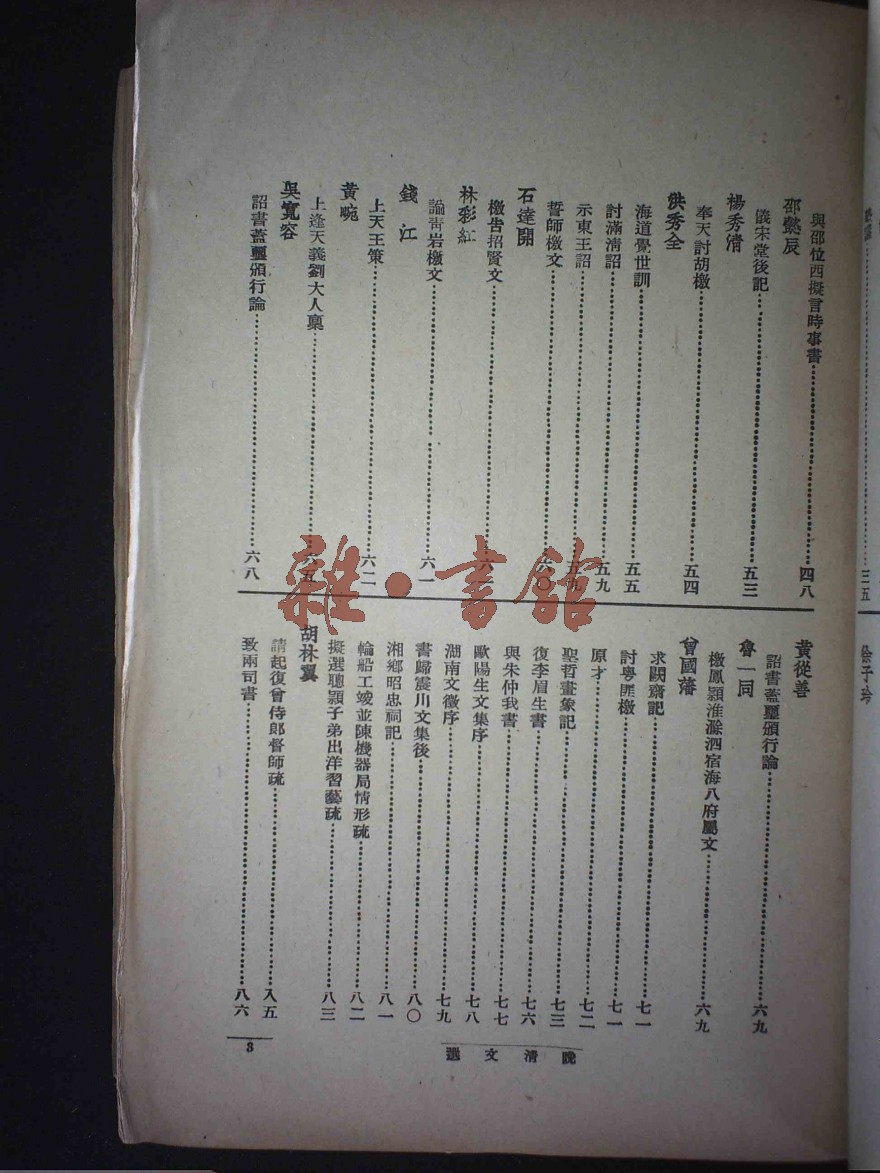 三五
徐子
與邵位西擬言時事書四八
邵懿辰
儀宋堂後記五三
楊秀淸
奉天討胡檄五四
洪秀全
海道覺世訓五五
討滿淸詔五九
示東王詔五九
誓師檄文六〇
石達開
檄告招賢文六
林彩紅
諭靑岩檄文六一
錢江
上天王策六二
黃畹
上逢天義劉大人稟六五
吳寬容
詔書蓋璽頒行論六八
黃從善
詔書蓋璽頒行論六九
魯一同
檄鳳潁淮滁泗宿海八府屬文六九
曾國藩
求闕齋記七一
討粵匪檄七一
原才七二
聖哲畫象記七三
復李眉生書七六
與朱仲我書七七
歐陽生文集序七八
湖南文徵序七九
書歸震川文集後八〇
湘鄉昭忠祠記八一
輪船工竣並陳機器局情形疏八二
擬選聰穎子弟出洋習藝疏八三
胡林翼
請起復曾侍郎督師疏八五
致兩司書八六
晚淸文選
3
雜·書館